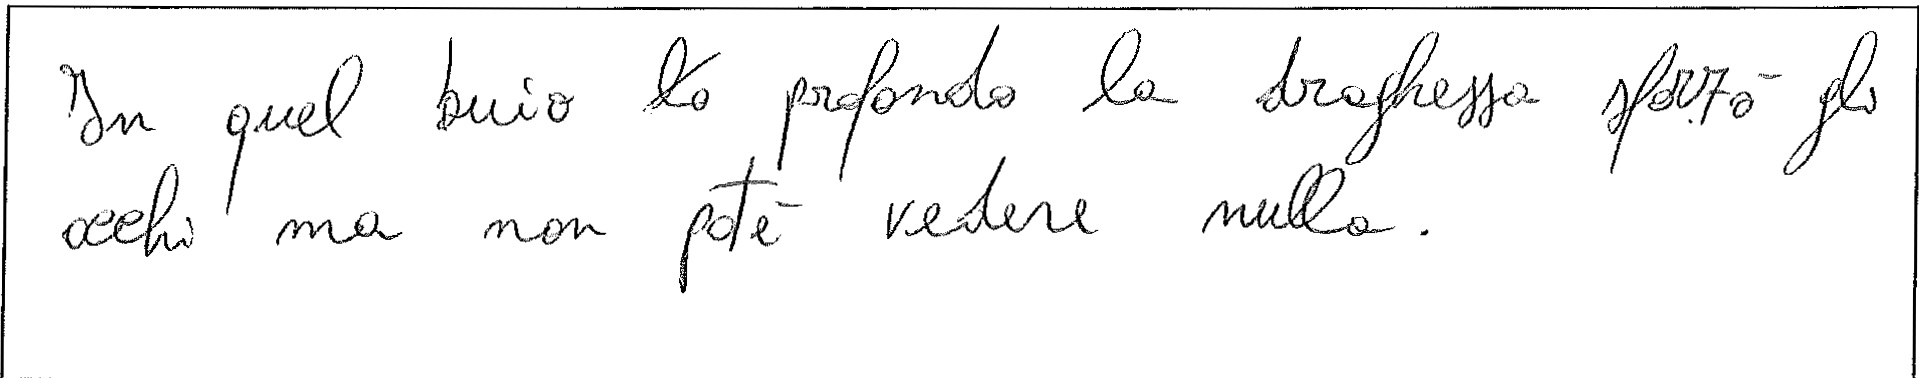 In quel buio profondo la draghessa sforzò gli
occhi ma non potē vedere nulla.